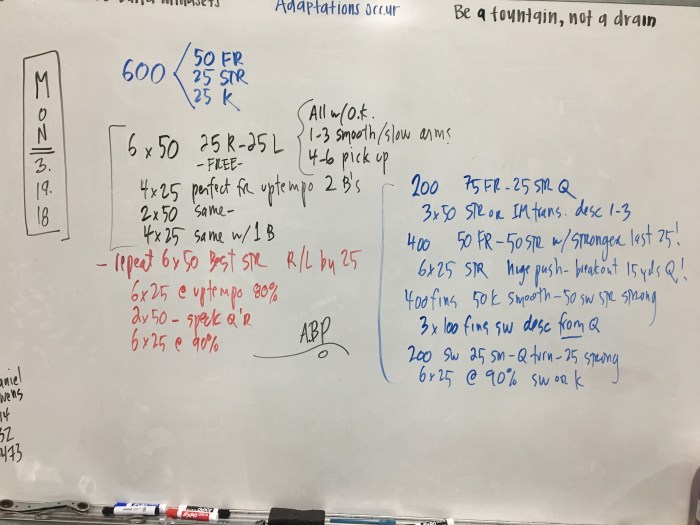 build mindsets
Adaptations occur
Be a fountain, not a drain
MON
3.
19.
18
600
50 FR
25 STR
25 K
6x50 25R-25L
-FREE-
All w/O.K.
1-3 smooth/slow arms
4-6 pick up
4x25 perfect fr uptempo 2 B's
2x50 same-
4x25 same w/ 1 B
- repeat 6x50 Best STR R/L by 25
6x25 @ uptempo 80%
2x50 - Q'R
6x25 @ 90%
ABP
200 75 FR-25 STR Q
3x50 STR or IM trans. desc 1-3
400 50 FR-50 STR w/stronger last 25!
6x25 STR Huge push-breakout 15yds Q!
400 fins 50K smooth-50 sw STR strong
3x100 fins sw desc from Q
200 sw 25 sm-Q turn-25 strong
6x25 @ 90% sw or K
aniel
wens
14
32
473